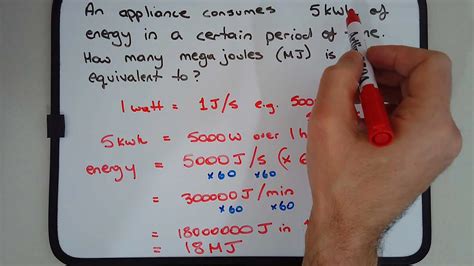 An appliance consumes 5kWh of
energy in a certain period of time.
How many megajoules (MJ) is
equivalent to?
1 watt = 1J/s e.g. 500
5kWh = 5000W over 1h
energy = 5000J/s (x 6
x60 x60
= 300000J/min
x60 x60
= 18000000J in
= 18MJ